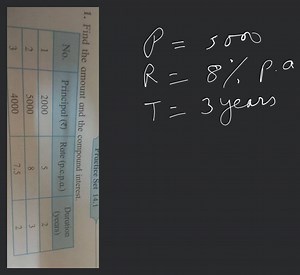 P = 5000
R = 8% p.a
T = 3 years
Practice Set 14.1
1. Find the amount and the compound interest.
No. Principal (₹) Rate (p.c.p.a.) Duration (years)
1 2000 5 2
2 5000 8 3
3 4000 7.5 2